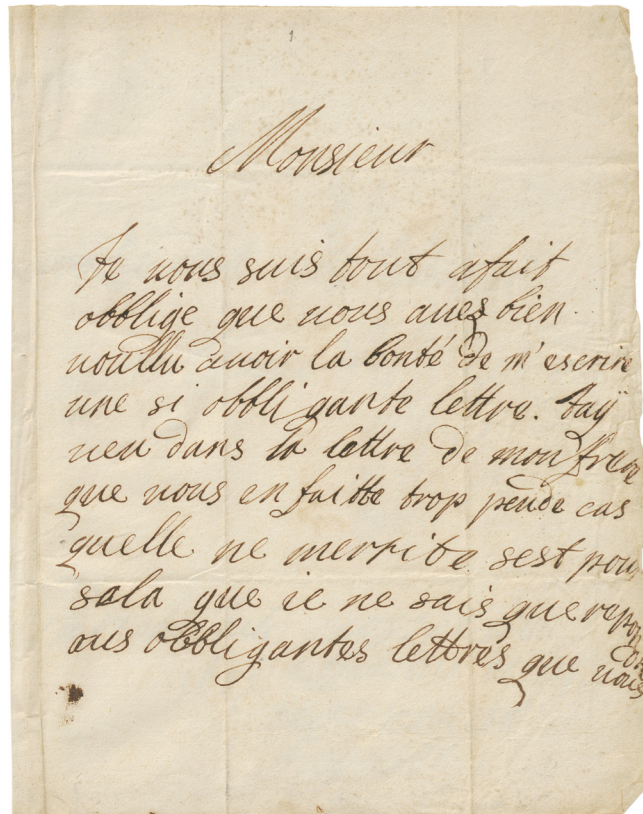 1
Monsieur
Je uous suis tout afait
obblige que uous aues bien
uoullu auoir la bonté de m'escrire
une si obbligante lettre. Jaÿ
ueu dans la lettre de mon frere
que uous en faitte trop peude cas
quelle ne merrite sest pour
sela que ie ne sais que repon
dre
aus obbligantes lettres que uous